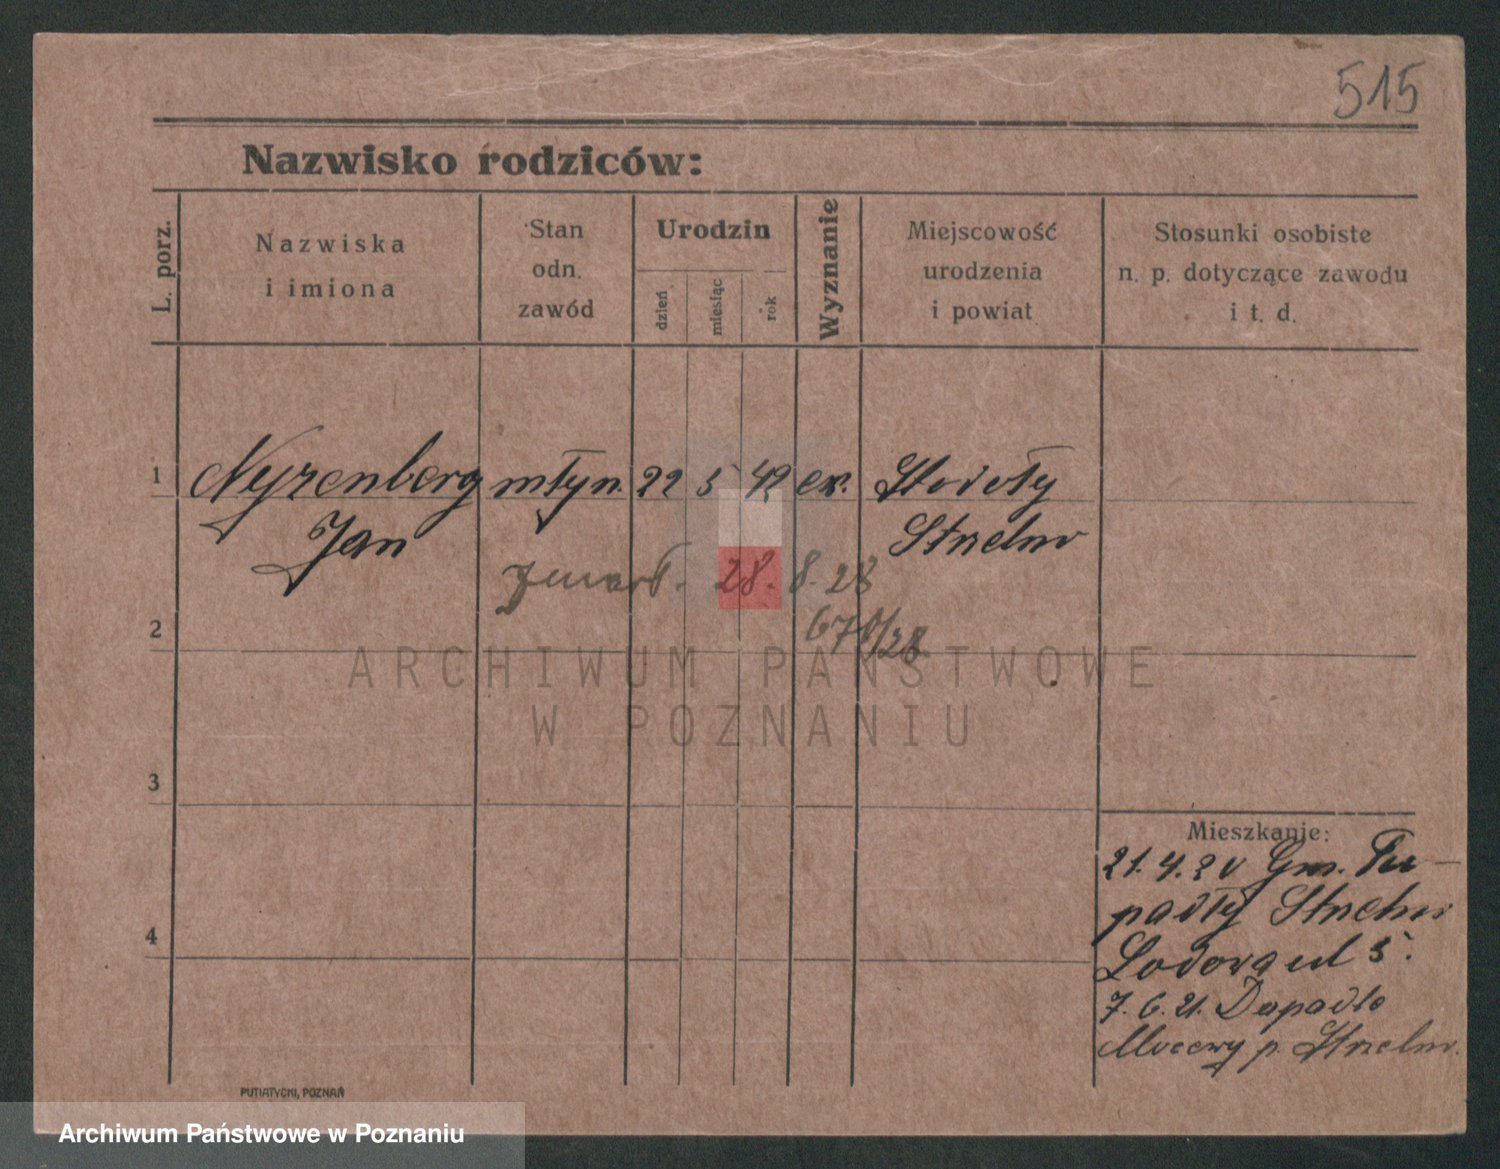 515
Nazwisko rodziców:
L. porz.
Nazwiska
i imiona
Stan
odn.
zawód
Urodzin
dzień
miesiąc
rok
Wyznanie
Miejscowość
urodzenia
i powiat
Stosunki osobiste
n. p. dotyczące zawodu
i t. d.
1 Nyrenberg młyn. 22 5 42 ew. Stodoły
Jan Strzelno
zmarł. 28. 8. 28
2
ARCHIWUM PAŃSTWOWE
W POZNANIU
3
Mieszkanie:
21.4.20 Gm. Tu-
padły Strzelno
4
5.
7.6.21.
p. Strzelno.
PUTIATYCKI, POZNAŃ
Archiwum Państwowe w Poznaniu